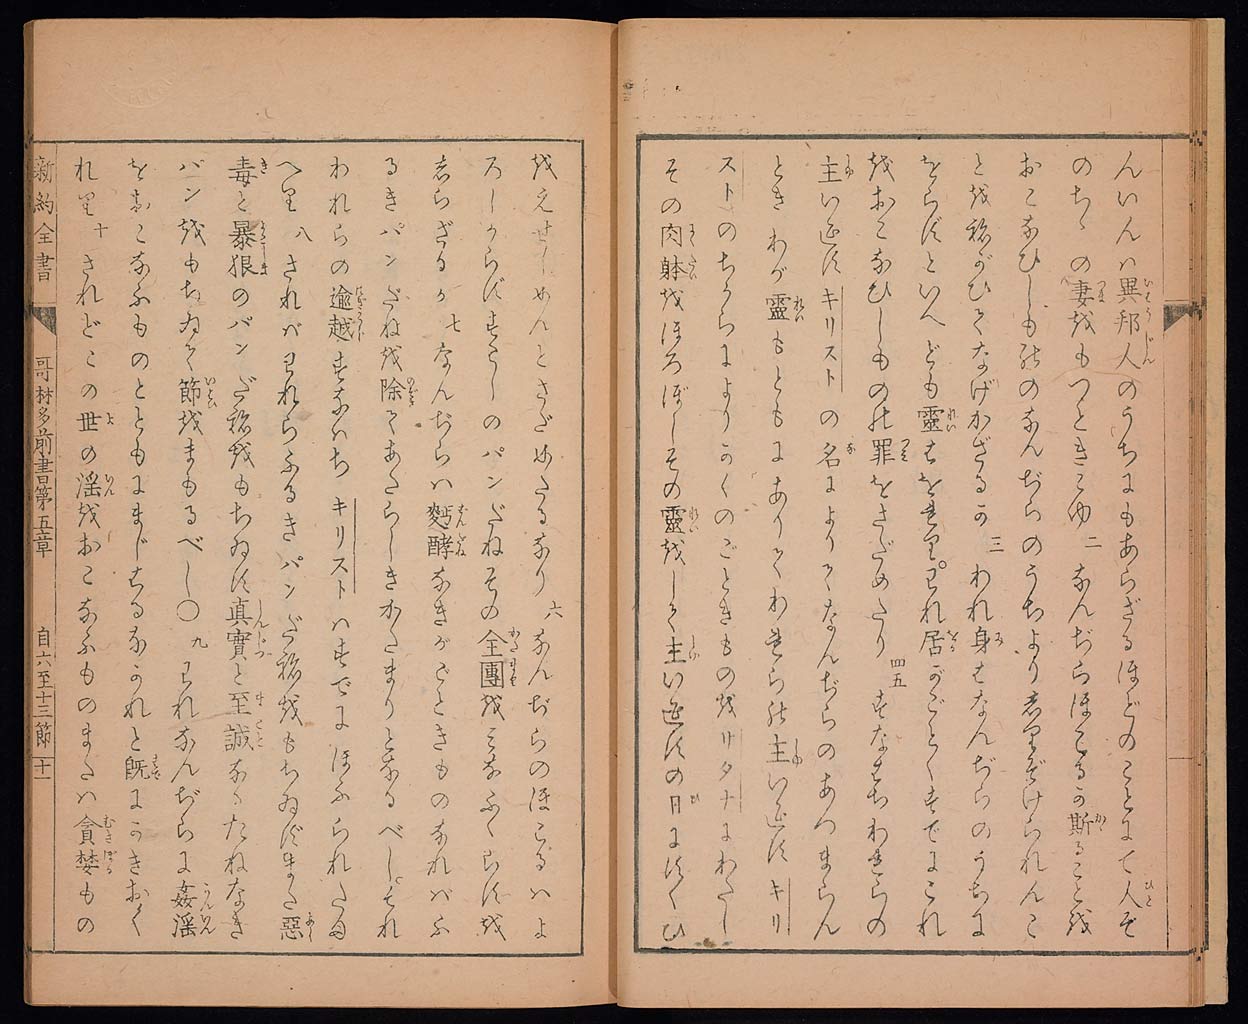 んいんハ異邦人のうちにもあらざるほどのことにて人そ
のちゝの妻越もつときこゆ 二 なんぢらほこる可斯ること越
おこなひしも能のなんぢらのうちより志りぞけられんこ
と越祢がひてなげかざる可 三 われ身ハなんぢらのうちに
をら須といへども靈ハをれり われ居がごとくすでにこれ
越おこなひしもの能罪をさだめたり 四五 すなはちわれらの
主い恵須キリストの名によりてなんぢらのあつまらん
ときわが靈もともにありてわれら能主い恵須キリ
ストのちからによりかくのごときもの越サタナにわたし
その肉躰越ほろぼしその靈越して主い恵須の日に須くひ
越えせしめんとさだめたるなり 六 なんぢらのほこるハよ
ろしからず須こしのパンだねその全團越みなふくら須越
志らざる可 七 なんぢらハ麪酵なきがごときものなれバふ
るきパンだね越除てあたらしきかたまりとなるべし それ
われらの逾越すなハちキリストハすでにほふられたま
へり 八 されバわれらふるきパンだ祢越もちゐ須また惡
毒と暴狠のパンだ祢越もちゐ須真實と至誠なるたねなき
パン越もちゐて節越まもるべし〇 九 われなんぢらに姦淫
をおこなふものとともにまじはるなかれと既にかきおく
れり 十 されどこの世の淫越おこなふものまたハ貪婪もの
新約全書
哥林多前書第五章
自六至十三節
十一